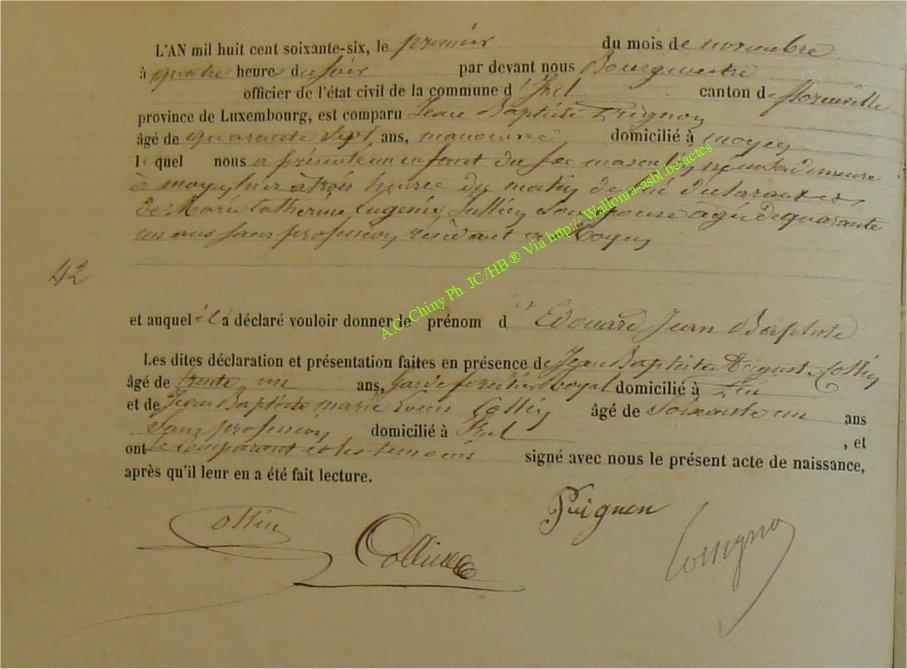 L'AN mil huit cent soixante-six, le premier du mois de novembre
à quatre heure du soir par devant nous Bourgmestre
officier de l'état civil de la commune d'Izel canton de florenville
province de Luxembourg, est comparu Jean Baptiste
âgé de quarante sept, ans, manoeuvre domicilié à moyen
lequel nous a présenté un enfant du sexe masculin, né
à moyen hier à trois heures du matin de lui déclarant et
de Marie Catherine Eugénie son épouse âgée de quarante
un ans sans profession résidant à Moyen
42
et auquel il a déclaré vouloir donner le prénom d' Edouard Jean Baptiste
Les dites déclaration et présentation faites en présence de Jean Baptiste August Collin
âgé de trente un ans, garde forestier royal domicilié à
et de Jean Baptiste marie Louis Collin âgé de soixante un ans
sans profession domicilié à Izel , et
ont le comparant et les temoins signé avec nous le présent acte de naissance,
après qu'il leur en a été fait lecture.
Puignon
Collin
Collin
A.C. Chiny Ph. JC/HB ® Via http:// Wallonia-asbl.be:actes